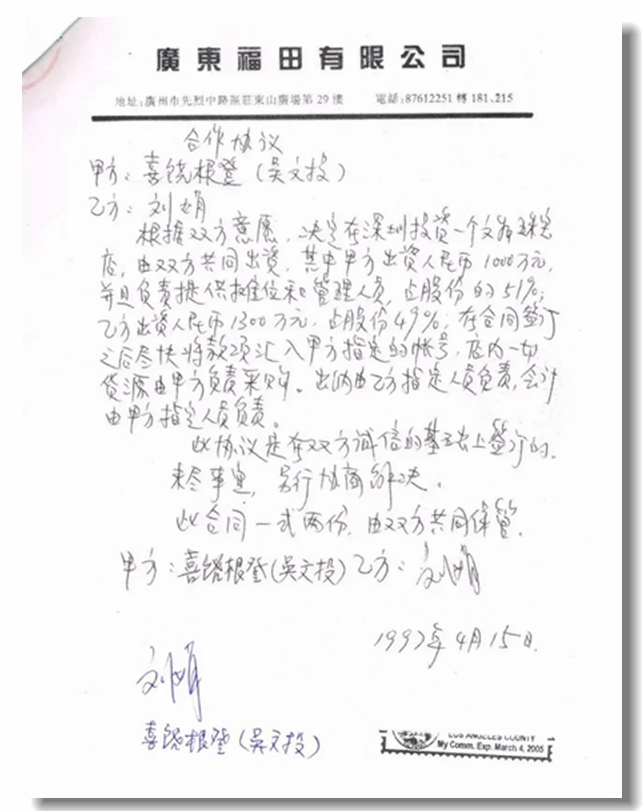 廣東福田有限公司
地址:廣州市先烈中路 東山廣場第29樓 電話:87612251 轉 181、215
合作协议
甲方:喜饶根登(吳文投)
乙方:刘娟
根据双方意愿,决定在深圳投资一个文物珠宝
店,由双方共同出資,其中甲方出資人民币1000万元,
并且负责提供摊位和管理人员,占股份的51%;
乙方出資人民币1300万元,占股份49%,在合同签订
之后尽快将款项汇入甲方指定的帐号,店内一切
货源由甲方负责采购。出纳由乙方指定人员负责,会计
由甲方指定人员负责。
此协议是在双方诚信的基础上签订的。
未尽事宜,另行协商解决。
此合同一式两份,由双方共同保管。
甲方:喜饶根登(吳文投)乙方:刘娟
1997年4月15日.
刘娟
喜饶根登(吳文投)
LOS ANGELES COUNTY
My Comm. Exp. March 4, 2005